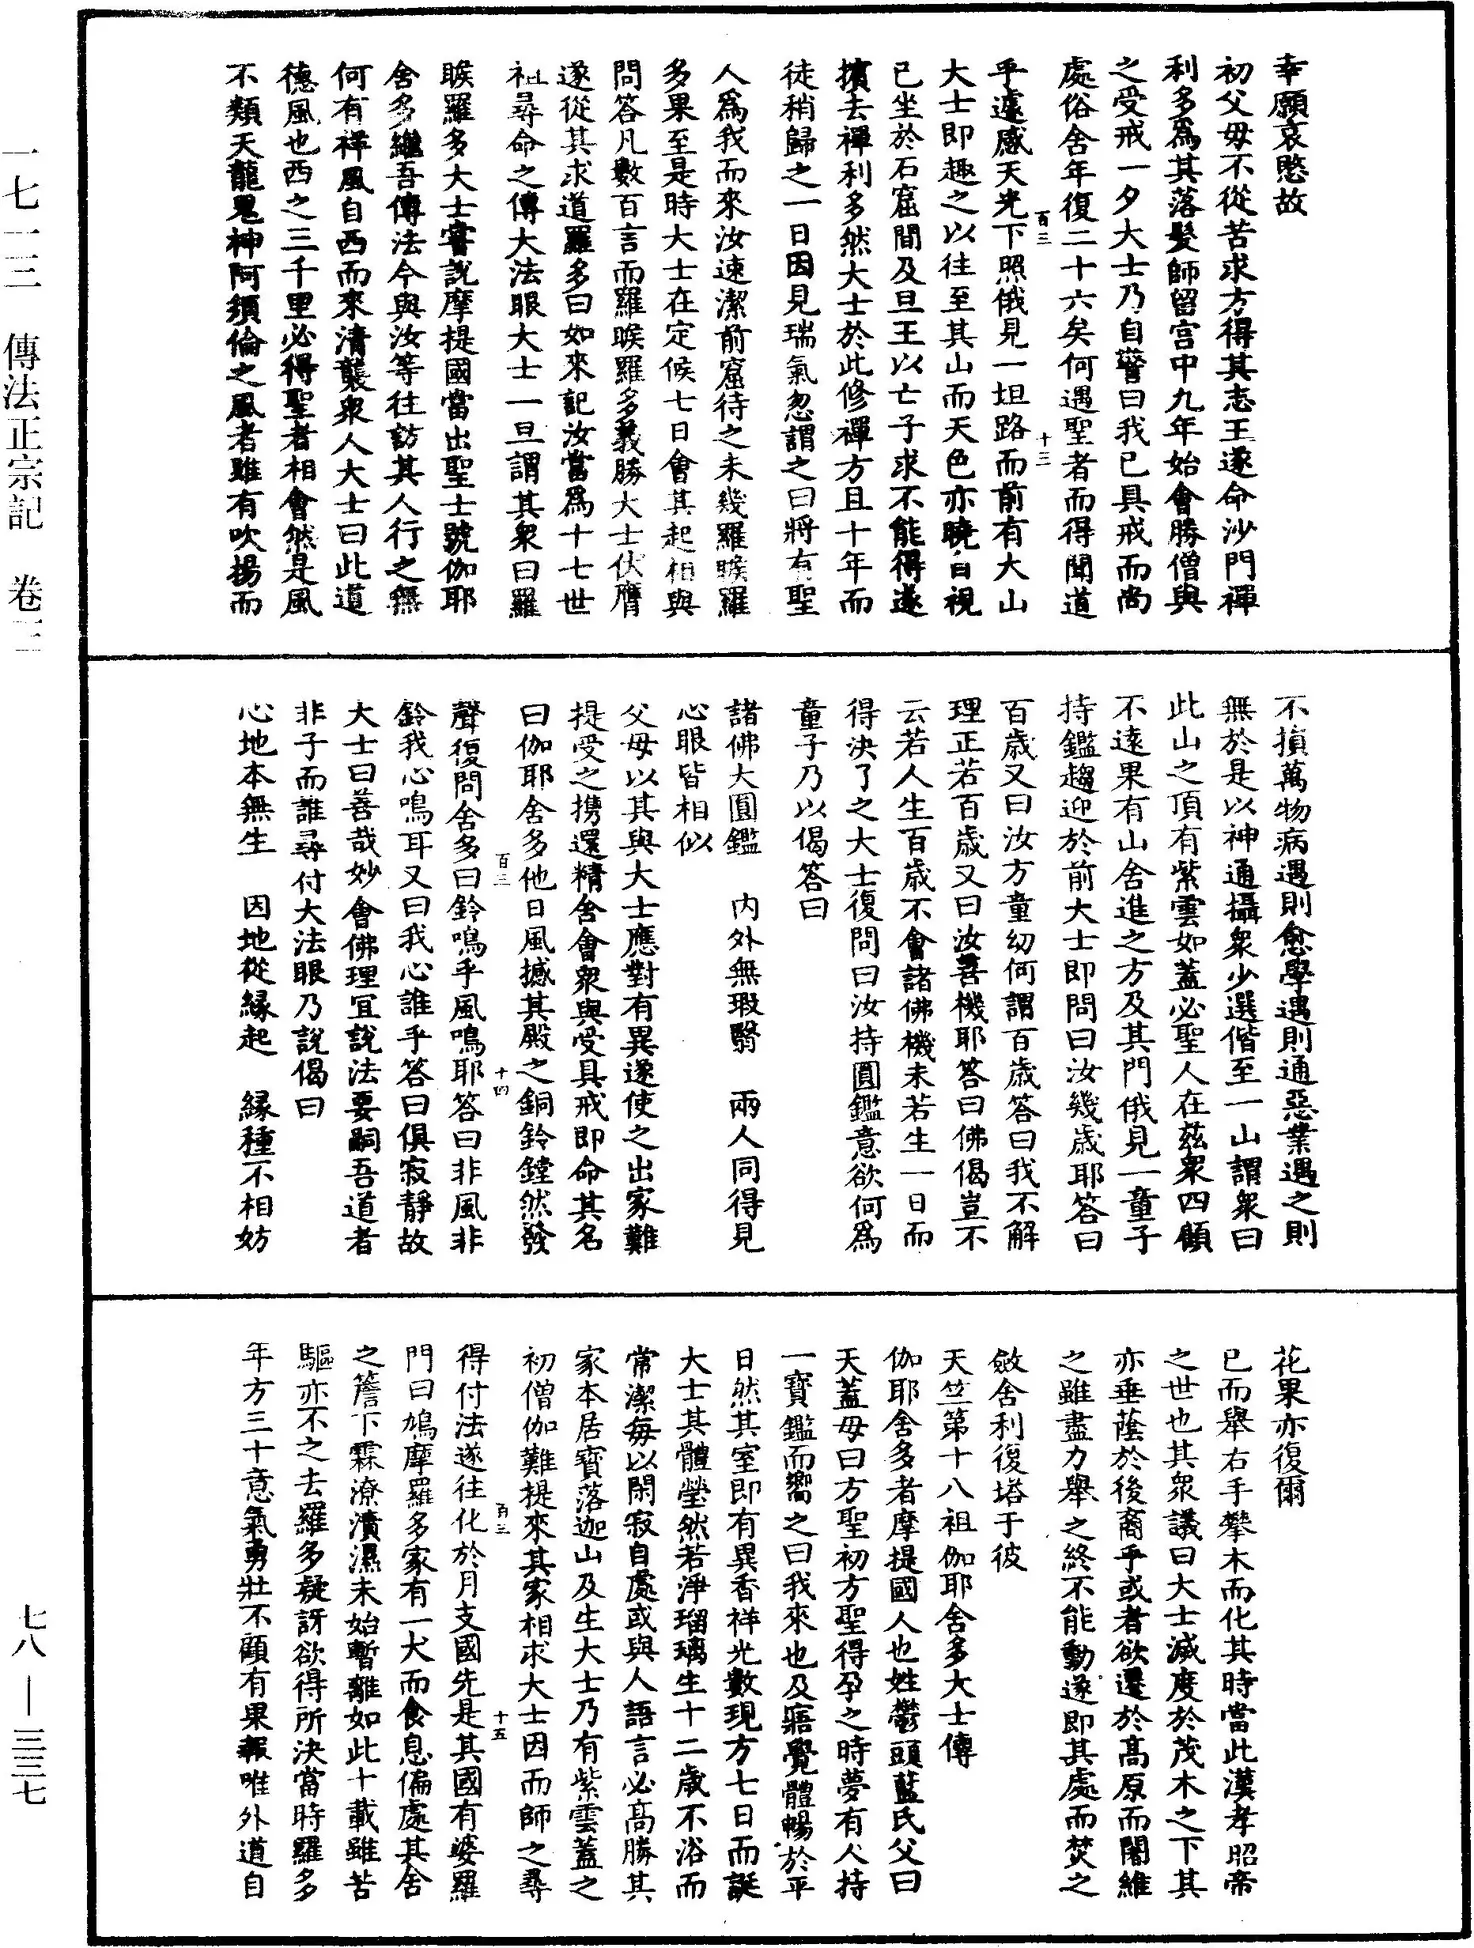 幸願哀愍故
初父母不從苦求方得其志王遂命沙門禪
利多爲其落髮師留宫中九年始會勝僧與
之受戒一夕大士乃自警曰我已具戒而尚
處俗舍年復二十六矣何遇聖者而得聞道
乎遽感天光下照俄見一坦路而前有大山
大士即趣之以往至其山而天色亦曉自視
已坐於石窟間及旦王以亡子求不能得遂
擯去禪利多然大士於此修禪方且十年而
徒稍歸之一日因見瑞氣忽謂之曰將有聖
人爲我而來汝速潔前窟待之未幾羅睺羅
多果至是時大士在定候七日會其起相與
問答凡數百言而羅睺羅多義勝大士伏膺
遂從其求道羅多曰如來記汝當爲十七世
祖尋命之傳大法眼大士一旦謂其衆曰羅
睺羅多大士嘗說摩提國當出聖士號伽耶
舍多繼吾傳法今與汝等往訪其人行之無
何有祥風自西而來清襲衆人大士曰此道
德風也西之三千里必得聖者相會然是風
不類天龍鬼神阿須倫之風者雖有吹揚而
百三
十三
不損萬物病遇則愈學遇則通惡業遇之則
無於是以神通攝衆少選偕至一山謂衆曰
此山之頂有紫雲如蓋必聖人在茲衆四顧
不遠果有山舍進之方及其門俄見一童子
持鑑趨迎於前大士即問曰汝幾歲耶答曰
百歲又曰汝方童幼何謂百歲答曰我不解
理正若百歲又曰汝善機耶答曰佛偈豈不
云若人生百歲不會諸佛機未若生一日而
得決了之大士復問曰汝持圓鑑意欲何爲
童子乃以偈答曰
諸佛大圓鑑　内外無瑕翳　兩人同得見
心眼皆相似
父母以其與大士應對有異遂使之出家難
提受之携還精舍會衆與受具戒即命其名
曰伽耶舍多他日風撼其殿之銅鈴鏜然發
聲復問舍多曰鈴鳴乎風鳴耶答曰非風非
鈴我心鳴耳又曰我心誰乎答曰俱寂靜故
大士曰善哉妙會佛理宜說法要嗣吾道者
非子而誰尋付大法眼乃說偈曰
心地本無生　因地從緣起　緣種不相妨
百三
十四
花果亦復爾
已而舉右手攀木而化其時當此漢孝昭帝
之世也其衆議曰大士滅度於茂木之下其
亦垂蔭於後裔乎或者欲遷於高原而闍維
之雖盡力舉之終不能動遂即其處而焚之
斂舍利復塔于彼
天竺第十八祖伽耶舍多大士傳
伽耶舍多者摩提國人也姓鬱頭藍氏父曰
天蓋母曰方聖初方聖得孕之時夢有人持
一寶鑑而嚮之曰我來也及寤覺體暢於平
日然其室即有異香祥光數現方七日而誕
大士其體瑩然若淨瑠璃生十二歲不浴而
常潔每以閑寂自處或與人語言必高勝其
家本居寶落迦山及生大士乃有紫雲蓋之
初僧伽難提來其家相求大士因而師之尋
得付法遂往化於月支國先是其國有婆羅
門曰鳩摩羅多家有一犬而食息偏處其舍
之簷下霖潦漬濕未始暫離如此十載雖苦
驅亦不之去羅多疑訝欲得所決當時羅多
年方三十意氣勇壯不顧有果報唯外道自
百三
十五
一七一三　傳法正宗記　卷三
七八—三三七